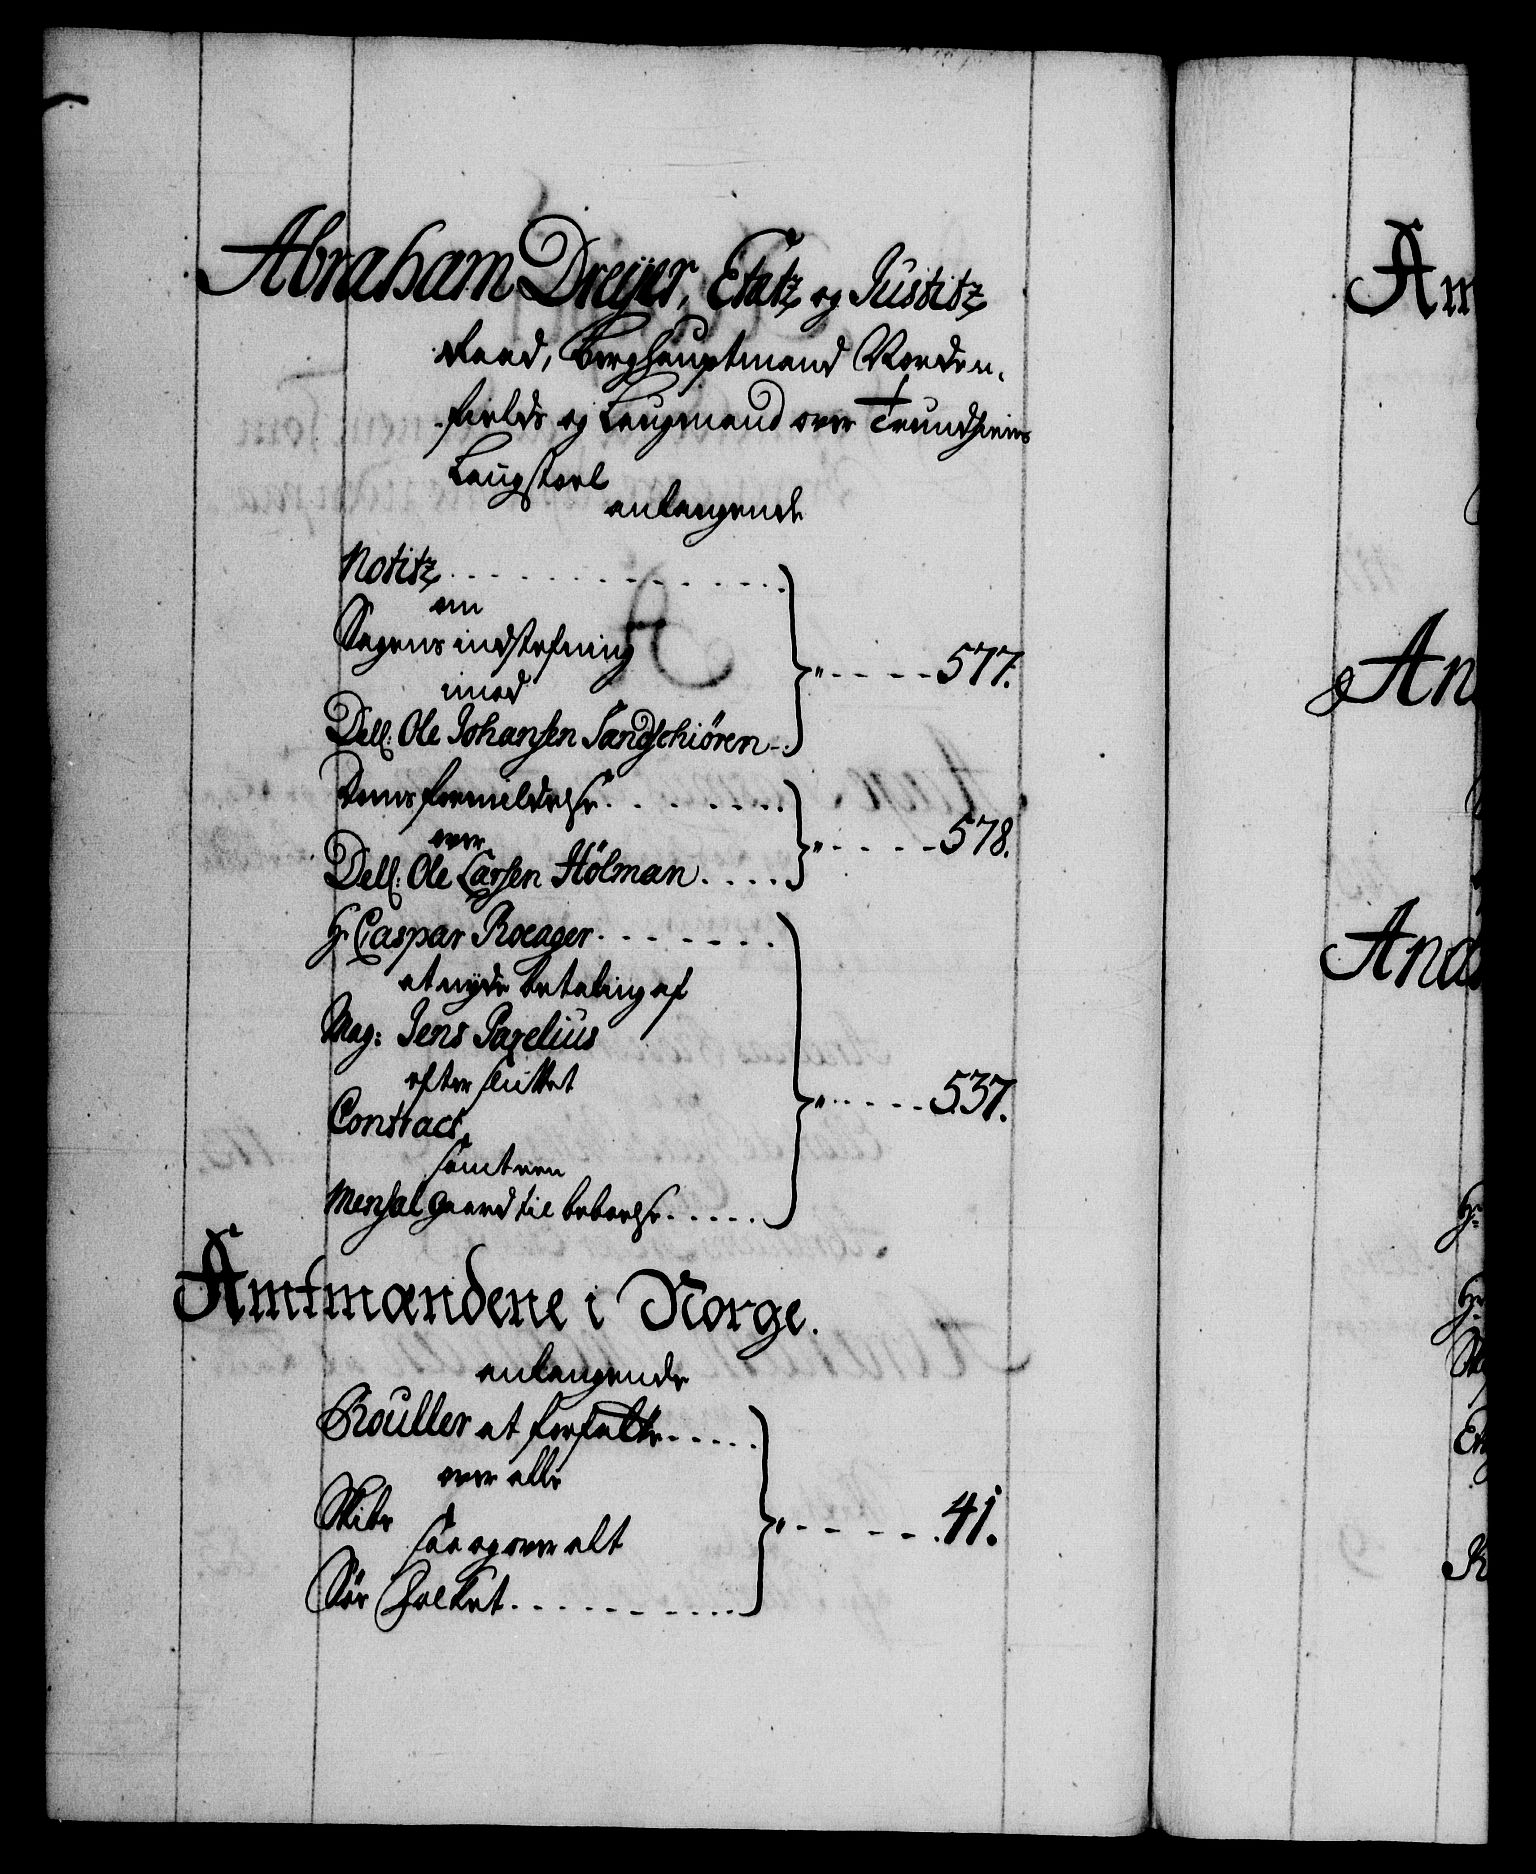 Abraham Dreÿer, Etatz og Justitz
Raad, Berghauptmand Norden-
fields og Laugmand over Trundhiems
Laugstoel
anlangende
Notitz
om
Sagens indstefning
imod
Dell: Ole Johansen Sandschiören
Doms formildelse
over
Dell: Ole Larsen Hölman
577.
578.
Hr Caspar Roeager
at nyde betaling af
Mag: Jens Parelius
efter sluttet
Contract
samt een
Mensal Gaard til beboelse
537.
Amtmændene i Norge.
anlangende
Rouller at forfatte
over alle
Skibe
saa og over alt
Söe Folket
41.
Am
An
And
Hr
Hr